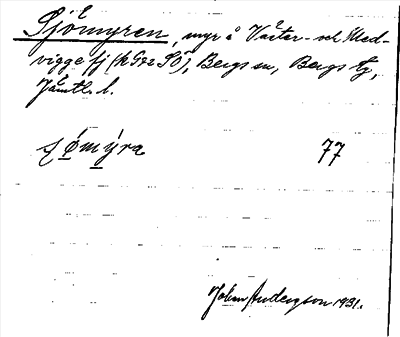 Sjömyren, myr å Västar- och Med-
viggefj (k 572 SÖ), Bergs sn, Bergs tg,
Jämtl. l.
ʃǿmýra 77
Johan Anderson 1931.